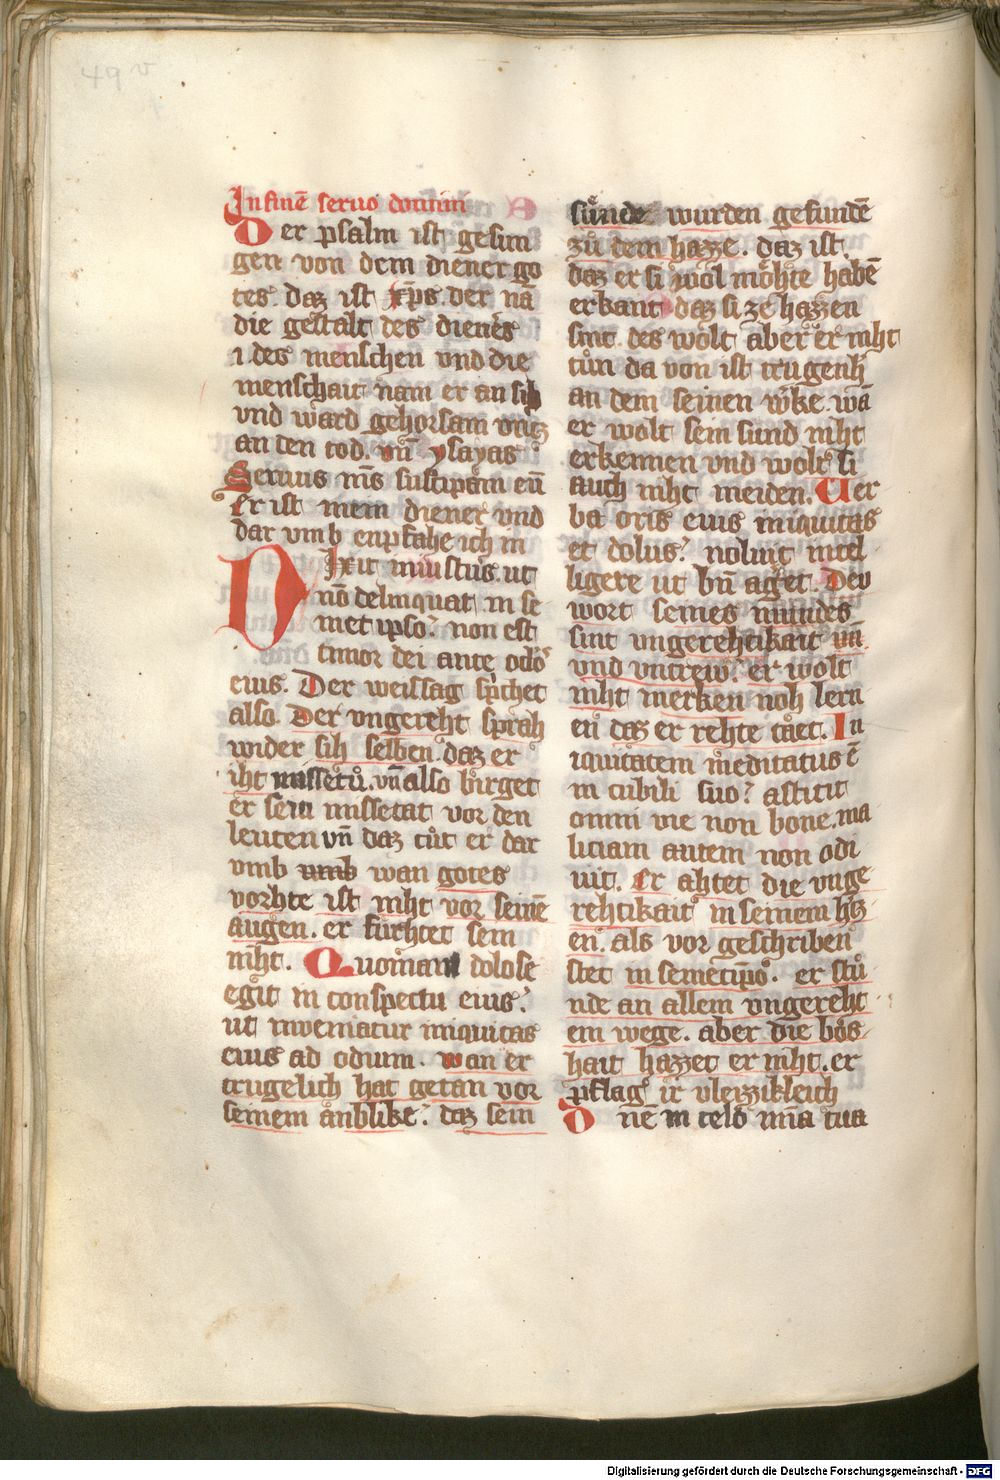 49 v
In finē seruo domini
Der psalm ist gesun
gen von dem diener go
tes. daz ist xp̄s. der nā
die gestalt des dieners
i. des menschen vnd die
menschait nam er an sih
vnd ward gehorsam vntz
an den tod. vn̄ ysayas
Seruus m̄s suscipiam eū
Er ist mein diener vnd
dar vmb enpfahe ich in
Dixit iniustus. ut
nō delinquat in se
met ipso? non est
timor dei ante oc̄lo
eius. Der weissag sp̄chet
also. Der vngereht sprah
wider sih selben. daz er
iht missetů. vn̄ also birget
er sein missetat vor den
leuten vn̄ daz tůt er dar
vmb vmb wan gotes
vorhte ist niht vor seinē
augen. er fürhtet sein
niht. Quoniam dolose
egit in conspectu eius?
ut inveniatur iniquitas
eius ad odium. wan er
trugelich hat getan vor
seinem anblike? daz sein
sünde wurden gefundē
zů dem hazze. daz ist
daz er si wol möhte habē
erkant daz si ze hazzen
sint. des wolt aber er niht
tůn da von ist trugenh
an dem seinen w̄ke. wā
er wolt sein sund niht
erkennen vnd wolt si
auch niht meiden. Uer
ba oris eius iniquitas
et dolus? noluit intel
ligere ut bn̄ ageret. Deu
wort seines mundes
sint vngerehtikait vn̄
vnd vntrew? er wolt
niht merken noh lern
en daz er rehte tået. In
iquitatem meditatus ē
in cubili suo? astitit
omni vie non bone. ma
liciam autem non odi
uit. Er ahtet die vnge
rehtikait in seinem htz
en. als vor geschriben
stet in semetip̄o. er stů
nde an allem vngereht
em wege. aber die bos
hait hazzet er niht. er
pflag ir vleizzikleich
Dn̄e in celo mīa tua
Digitalisierung gefördert durch die Deutsche Forschungsgemeinschaft - DFG